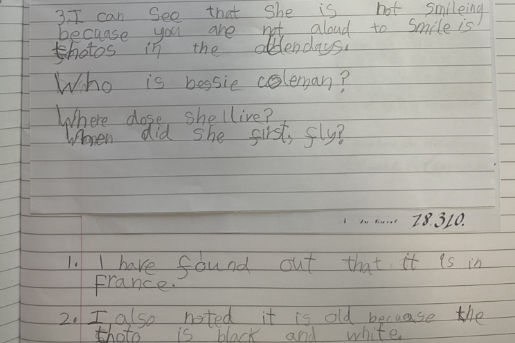 3. I can see that she is not smileing
becuase you are not aloud to smile is
thotos in the oldendays.
Who is bessie coleman?
Where dose she live?
When did she first, fly?
78.310.
1. I have found out that it is in
France.
2. I also noted it is old becuase the
thoto is black and white.